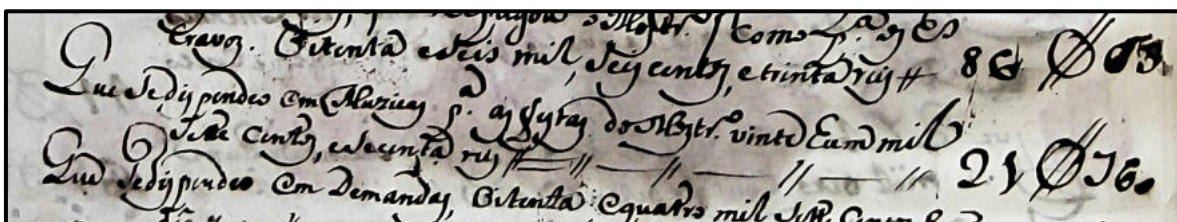 Como p.ª as
Cravos. Oitenta e seis mil, Seis centos, e trinta reis // 86 $ 63
Que Se dispendeo em Muzicas p.ª as festas do Mostr.º vinte E um mil
Sette Centos, e Secenta reis // — // — // — // — // 21 $ 760
Que Se dispendeo em Demandas, Oitenta e quatro mil Sette Centos